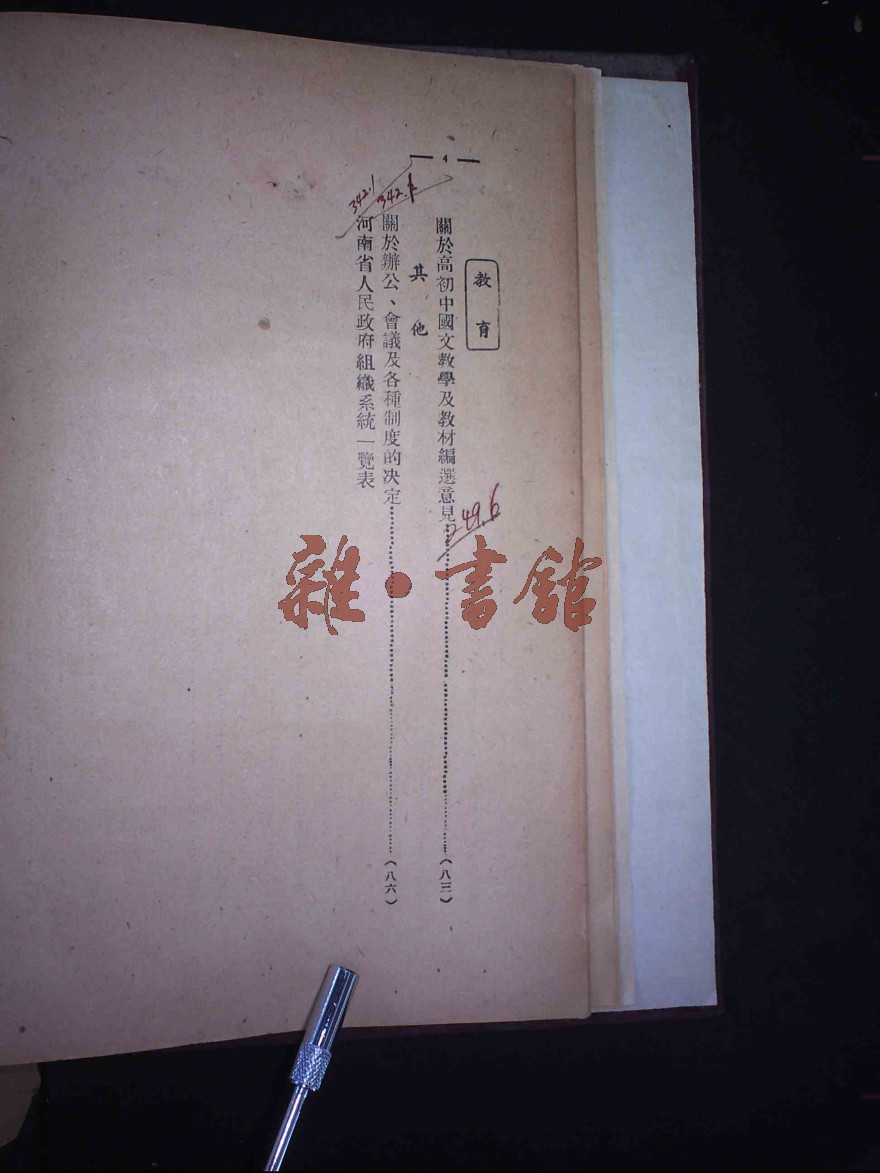 — 4 —
教育
關於高初中國文教學及教材編選意見………(八三)
249.6
其他
關於辦公、會議及各種制度的决定………(八六)
342.1
河南省人民政府組織系統一覽表
342.1
雜·書館